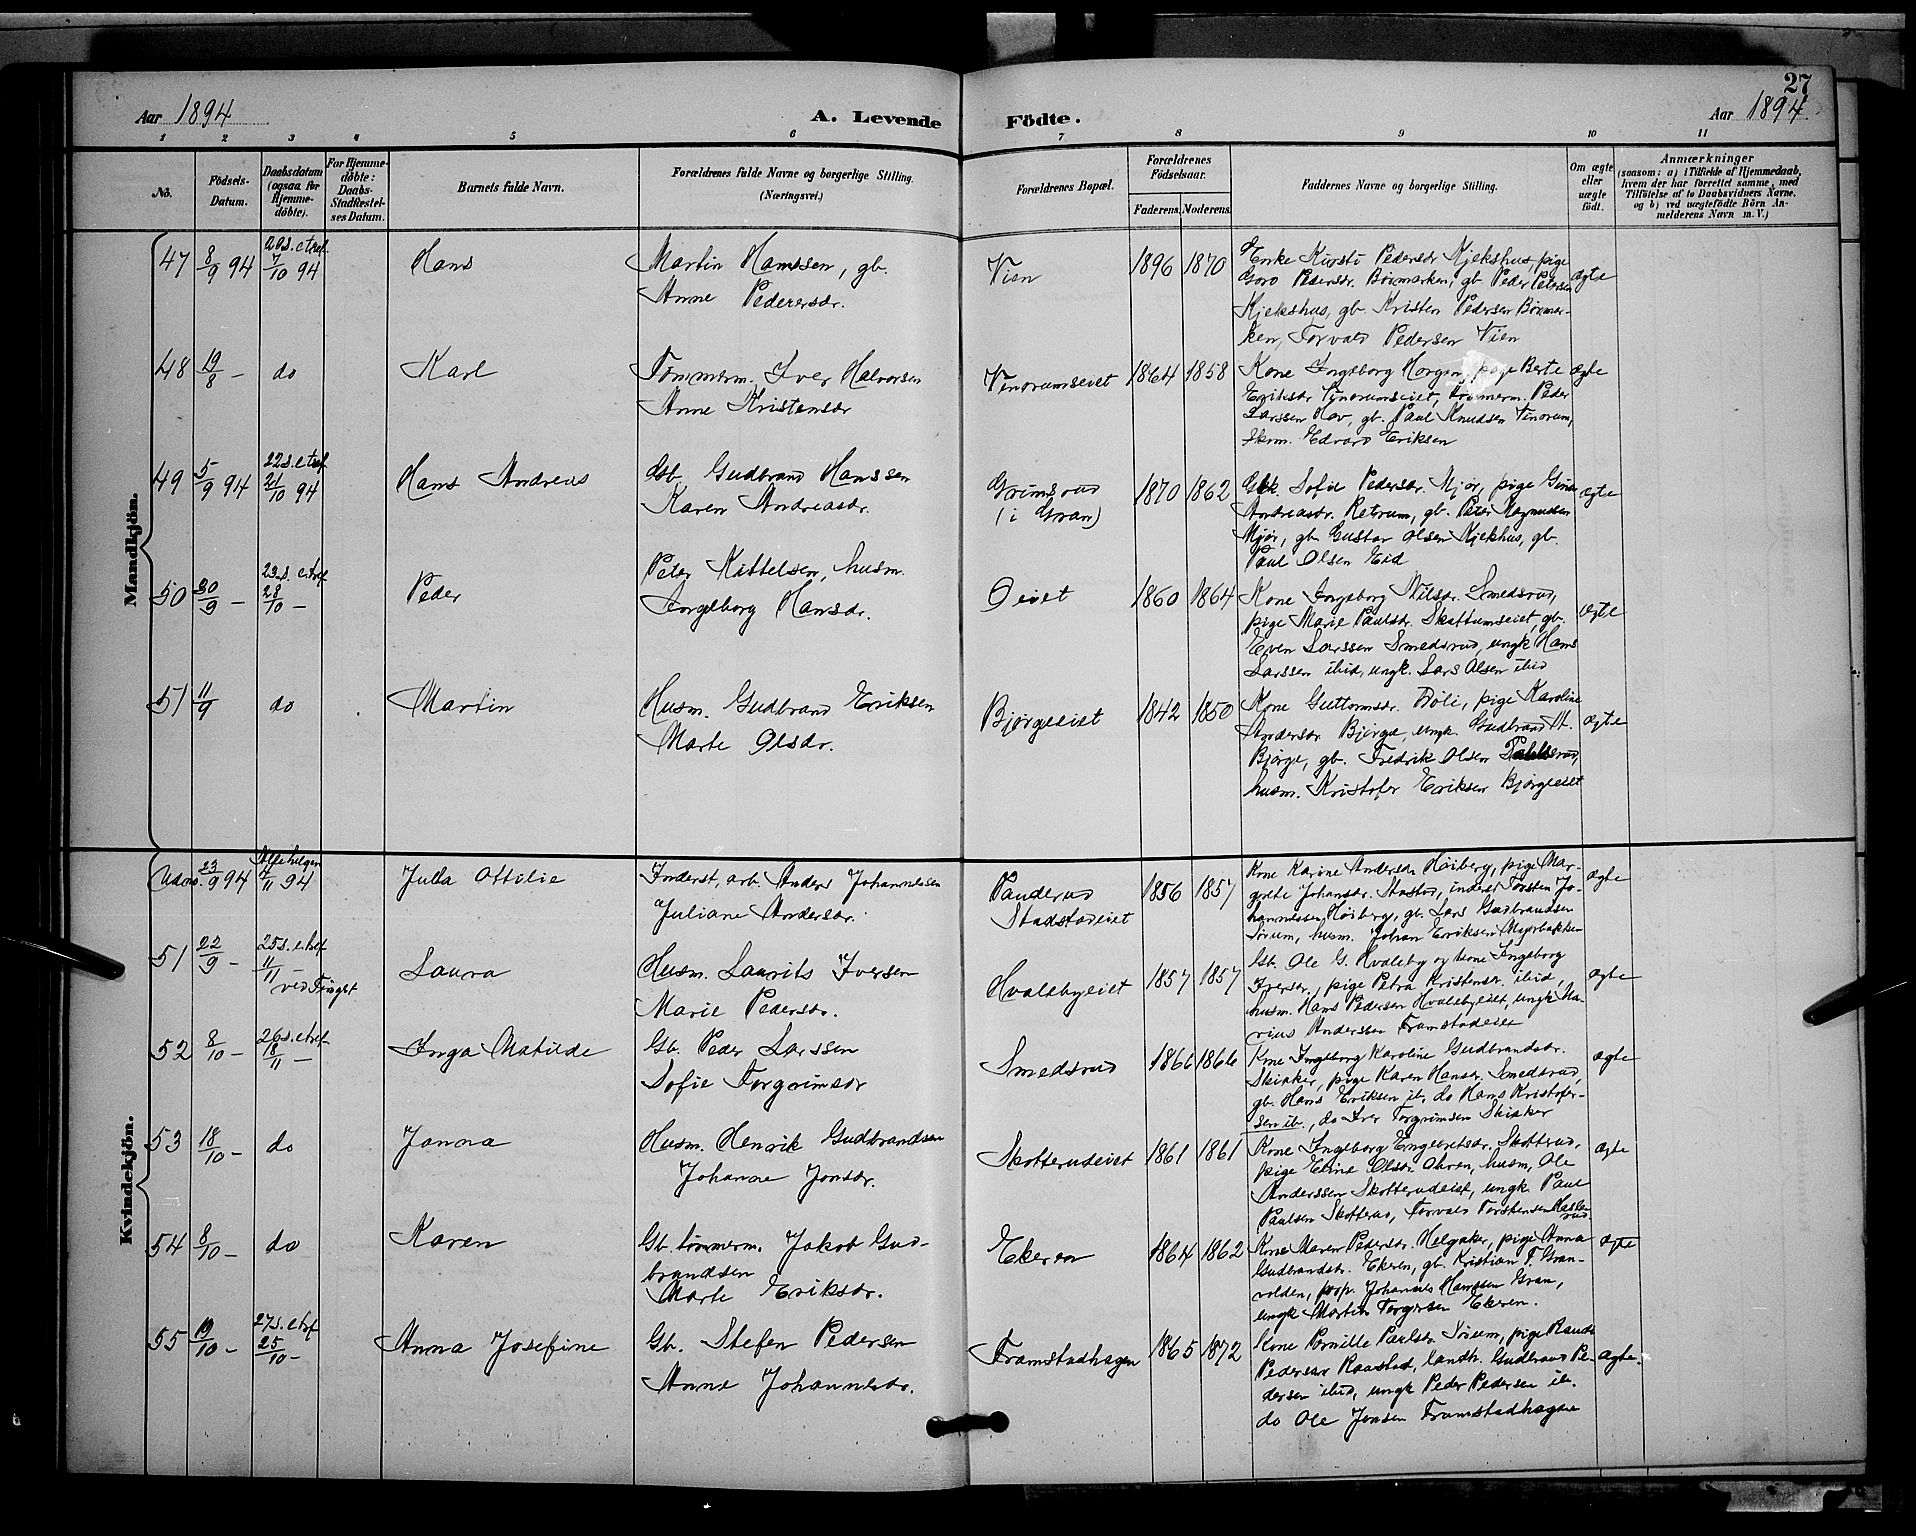 27
Aar 1894
A. Levende
Födte.
Aar 1894.
1 2 3 4 5 6 7 8 9 10 11
No.
Födsels-
Datum.
Daabsdatum
(ogsaa for
Hjemme-
döbte).
For Hjemme-
döbte:
Daabs-
Stadfæstel-
ses Datum.
Barnets fulde Navn.
Forældrenes fulde Navne og borgerlige Stilling.
(Næringsvei.)
Forældrenes Bopæl.
Forældrenes
Födselsaar.
Faderens. Moderens.
Faddernes Navne og borgerlige Stilling.
Om ægte
eller
uægte
födt.
Anmærkninger
(saasom: a) i Tilfælde af Hjemmedaab,
hvem der har forrettet samme, med
Tilföielse af to Daabsvidners Navne,
og b) ved uægtefödte Börn An-
melderens Navn m. V.)
Mandkjön.
47 8/9 94
20 s. e tref.
7/10 94
Hans
Martin Hanssen, gb.
Anne Pedersdr.
Vien
1896 1870
Enke Kirsti Pedersdr Kjekshus, pige
Goro Pedersdr. Börmarken, gb Peder Petersen
Kjekshus, gb. Kristen Pedersen Börmar-
ken, Torvald Pedersen Vien
ægte
48 19/8 - do
Karl
Tömmerm. Iver Halvorsen
Anne Kristensdr
Vinorumseiet
1864 1858
Kone Ingeborg Horgen, pige Berte
Eriksdr Vinorumseiet, tömmerm. Peder
Larssen Hov, gb. Paul Knudsen Vinorum,
Skom. Edvard Eriksen
ægte
49 5/9 94
22 s. e tref.
21/10 94
Hans Andreas
Gb. Gudbrand Hanssen
Karen Andreasdr.
Grimsrud
(i Gran)
1870 1862
Gbk. Sofie Pedersdr. Mjör, pige Gina
Andreasdr. Retrum, gb. Peter Magnussen
Mjör, gb Gustav Olsen Kjekhus, gb.
Paul Olsen Eid
ægte
50 30/9 -
23 s. e. tref
28/10 -
Peder
Peter Kittelsen, husm.
Ingeborg Hansdr.
Oeiet
1860 1864
Kone Ingeborg Nilsdr. Smedsrud,
pige Marie Paulsdr. Skattumseiet, gb.
Even Larssen Smedsrud, ungk Hans
Larssen ibid, ungk. Lars Olsen ibid
ægte
51 11/9 do
Martin
Husm. Gudbrand Eriksen
Marte Olsdr.
Bjørgeeiet
1842 1850
Kone Guttormsdr. Döli, pige Karoline
Andersdr Bjørge, ungk. Gudbrand A.
Bjørge, gb. Fredrik Olsen
husm. Kristofer Eriksen Bjørgeeiet
ægte
Kvindekjön.
23/9 94
Allehelgen
4/11 94
Julla Ottilie
Inderst, arb. Anders Johannessen
Juliane Andersdr.
Pauderud
Stadstadeiet
1856 1857
Kone Karine Andersen Höiberg, pige Mar-
grete Johansdr. Stastad, inderst Torsten Jo-
hannessen Höiberg, gb. Lars Gudbrandsen
Sörum, husm. Johan Eriksen Myrbakken
ægte
51 22/9 -
25 s. e tref
11/11 -
ved Tingel
Laura
Husm. Laurits Iversen
Marie Pedersdr.
Hvalebyeiet
1857 1857
Gb. Ole G. Hvaleby og kone Ingeborg
Iversdr., pige Petra Kristensdr. ibid,
husm. Hans Pedersen Hvalebyeiet, ungk Ma-
rius Anderssen Framstadeiet
ægte
52 8/10 -
26 s. e tref
18/11 -
Inga Matilde
Gb. Peder Larssen
Sofie Torgrimsdr
Smedsrud
1866 1866
Kone Ingeborg Karoline Gudbrandsdr.
Skiaker, pige Karen Hansdr. Smedsrud,
gb. Hans Eriksen ib. do Hans Kristofer-
sen ib., do Iver Torgrimsen Skiaker
ægte
53 18/10 - do
Janna
Husm. Henrik Gudbrandsen
Johanne Jonsdr.
Skotterudeiet
1861 1861
Kone Ingeborg Engebretsdr. Skotterud,
pige Eline Olsdr. Ohren, husm. Ole
Anderssen Skotterudeiet, ungk. Paul
Paulsen Skotterud, Torvald Torstensen Hasle-
rud.
ægte
54 8/10 - do
Karen
Gb. tömmerm. Jakob Gud-
brandsen
Marte Eriksdr.
Ekeren
1864 1862
Kone Maren Pedersdr. Helgaker, pige Anna
Gudbrandsdr. Ekeren, gb. Kristian T. Gran-
volden, prop. Johannes Hanssen Gran,
ungk Martin Torgersen Ekeren.
ægte
55 19/10 -
27 s. e tref
25/10 -
Anna Josefine
Gb. Stefen Pedersen
Anne Johannesdr.
Framstadhagen
1865 1872
Kone Pernille Paulsdr. Sörum, pige Randi
Pedersdr Raastad, landh. Gudbrand Pe-
dersen ibid, ungk Peder Pedersen ib.
do Ole Jonsen Framstadhagen
ægte.